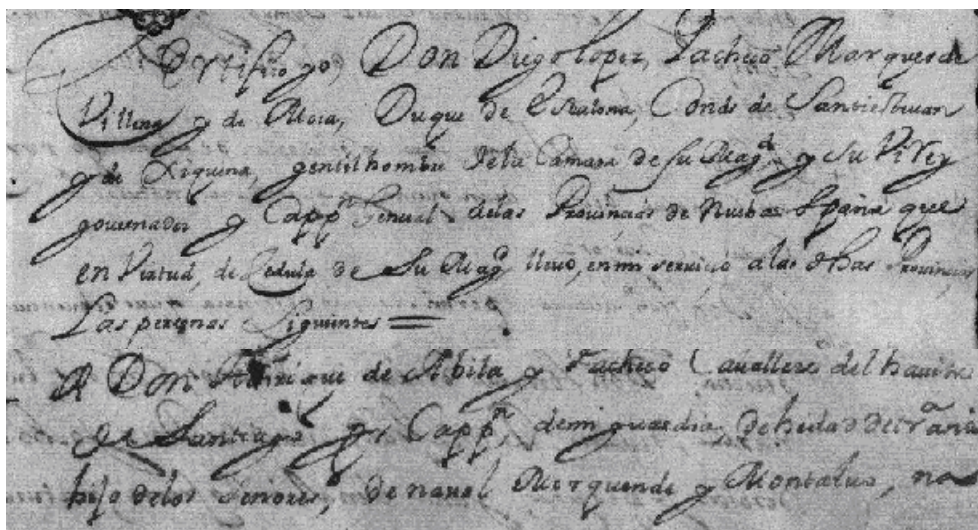 Certifico yo, Don Diego Lopez, Pacheco Marques de
Villena y de Moia, Duque de Escalona, Conde de Santisteuan
y de Xiquena, gentilhombre dela Camara de su Magd, y su Virey
gouernador y Cappn General delas Prouincias de Nueba España que
en Virtud, de Zedula de Su Magd lleuo, en mi seruicio a las dhas Prouincias
Las personas Siguintes =
A Don Henrique de Abila y Pacheco Cauallero del hauito
de Santiago y Cappn, de mi guardia, de hedad de
hijo delos Senores, de naual Morquende y Montaluo, na